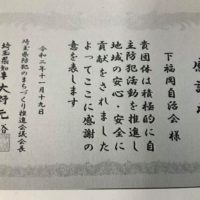 感謝状
下福岡自治会 様
貴団体は積極的に自
主防犯活動を推進し
地域の安心・安全に
貢献をされました
よってここに感謝の
意を表します
令和二年十一月十九日
埼玉県防犯のまちづくり推進会議会長
埼玉県知事 大野元裕